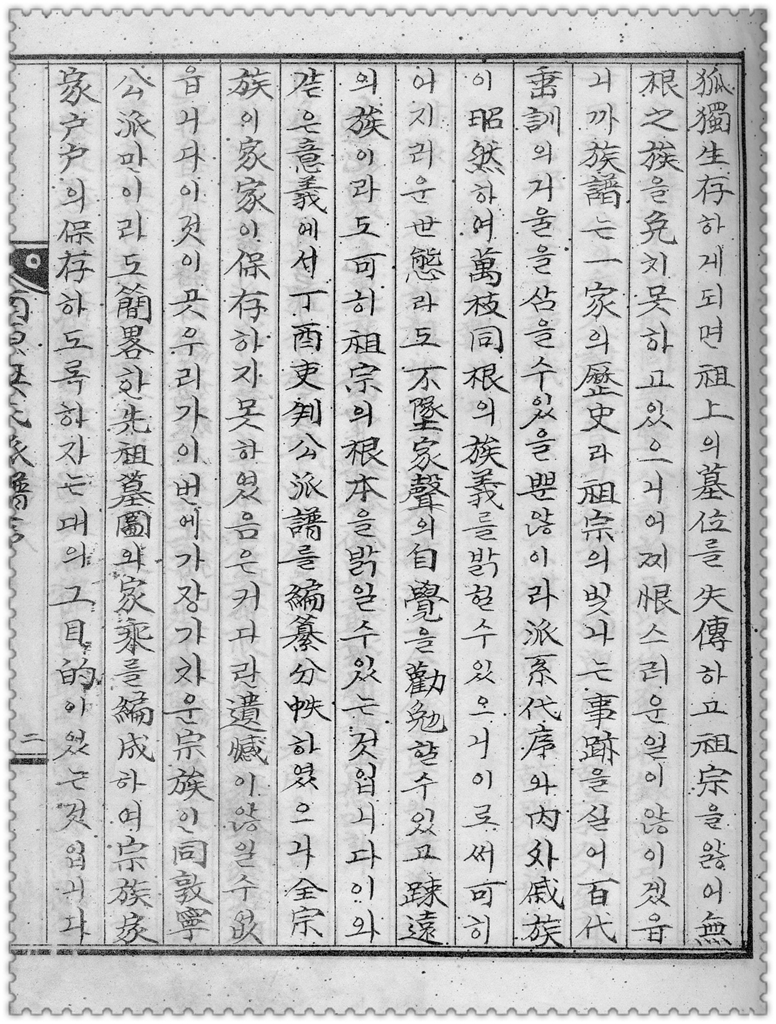 孤獨生存하게되면祖上의墓位를失傳하고祖宗을잃어無
根之族을免치못하고있으니어찌恨스러운일이않이겠읍
니까族譜는一家의歷史라祖宗의빛나는事跡을실어百代
垂訓의거울을삼을수있을뿐않이라派系代序와內外戚族
이昭然하여萬枝同根의族義를밝힌수있으니이로써可히
어지러운世態라도不墜家聲의自覺을勸勉할수있고踈遠
의族이라도可히祖宗의根本을밝일수있는것입니다이와
같은意義에서丁酉吏判公派譜를編纂分帙하였으나全宗
族의家家이保存하자못하였음은커다란遺憾이않일수없
읍니다이것이곳우리가이번에가장가차운宗族인同敦寧
公派만이라도簡畧한先祖墓圖와家乘를編成하여宗族家
家戶戶의保存하도록하자는대의그目的이었는것입니다
氏派譜
二